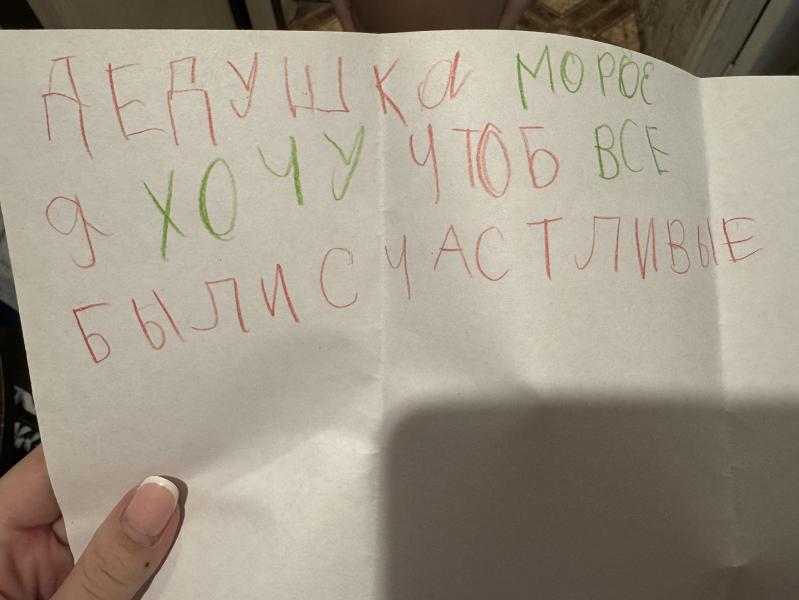 ДЕДУШКа МОРОС
я ХОЧУ ЧТОБ ВСЕ
БЫЛИ СЧАСТЛИВЫЕ